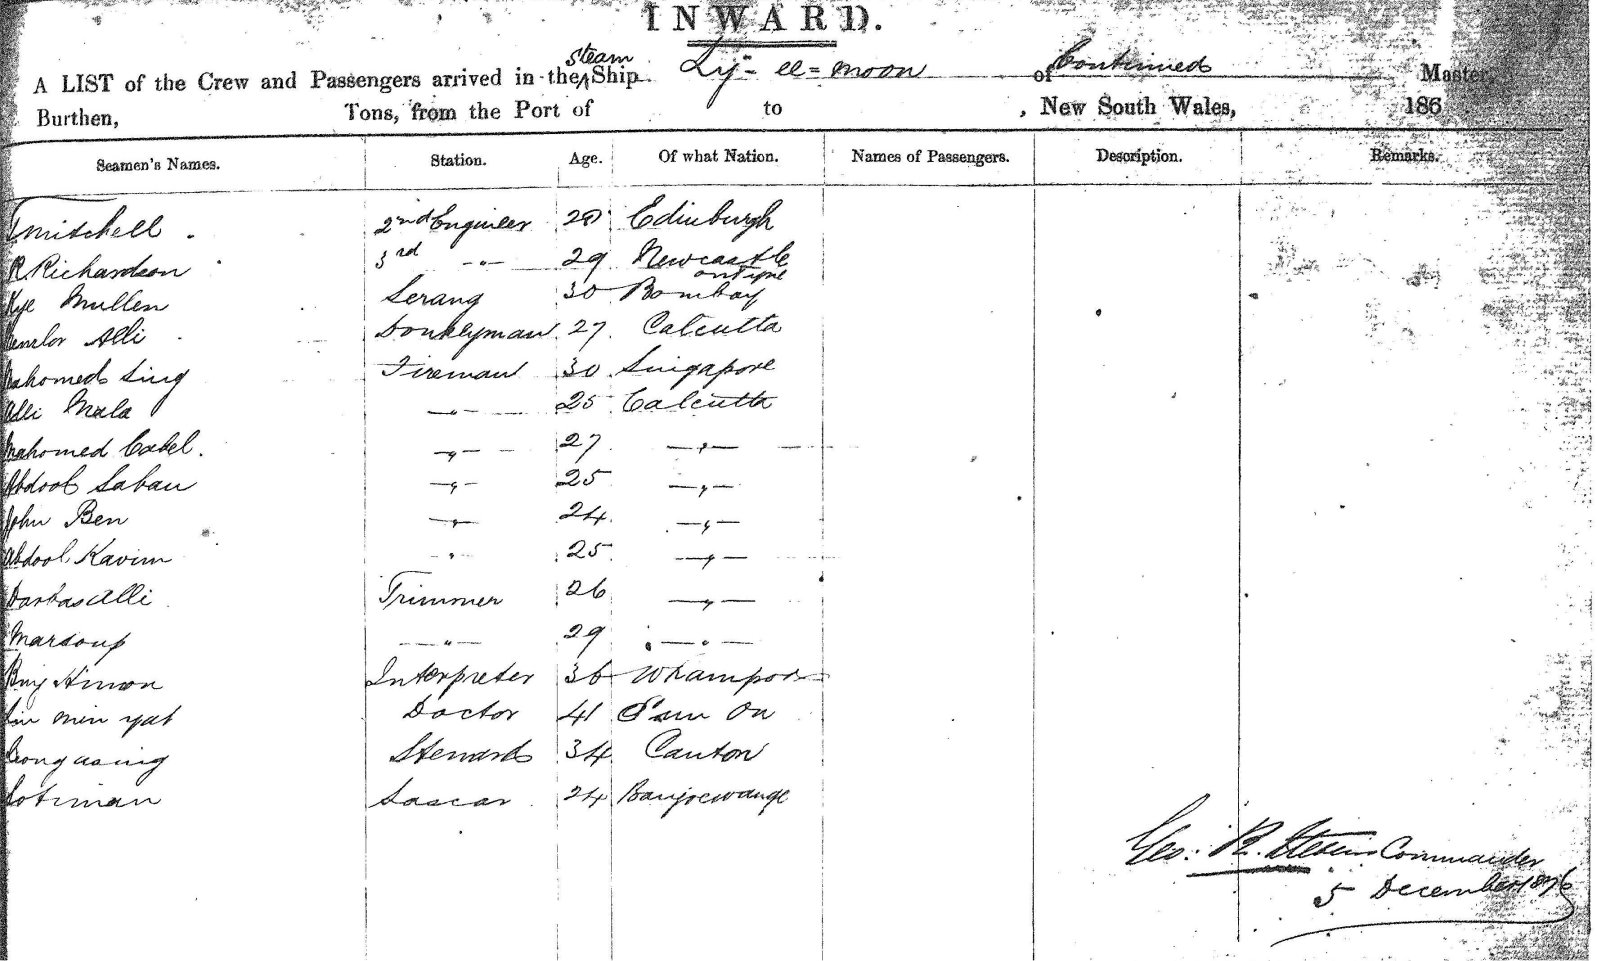 INWARD.
A LIST of the Crew and Passengers arrived in the Steam Ship Ly-ee-moon of Continued Master,
Burthen, Tons, from the Port of to , New South Wales, 186
Seamen's Names. Station. Age. Of what Nation. Names of Passengers. Description. Remarks.
T Mitchell . 2nd Engineer Edinburgh
R Richardson 3rd -"- 29 Newcastle on Tyne
Mullen Serang 30 Bombay
Alli Donkeyman 27 Calcutta
Mahomed Sing Fireman 30 Singapore
Alli Mala -"- 25 Calcutta
Mahomed Cabel. -"- 27 -"-
Abdool Saban -"- 25 -"-
John Ben -"- 24 -"-
Abdool Kavim " 25 -"-
Darbas Alli Trimmer 26 -"-
Marsoup -"- 29 -"-
Interpreter 36 Whampoa
min yat Doctor 41 On
Steward 34 Canton
Lascar 24 Banjoewange
Geo: R. Commander
5 December 1876